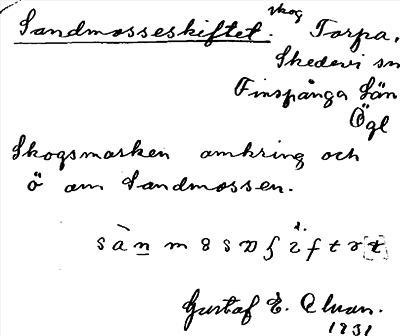 Sandmosseskiftet. skog Torpa,
Skedevi sn
Finspånga län
Ögl
Skogsmarken omkring och
ö om Sandmossen.
Gustaf E.
1931